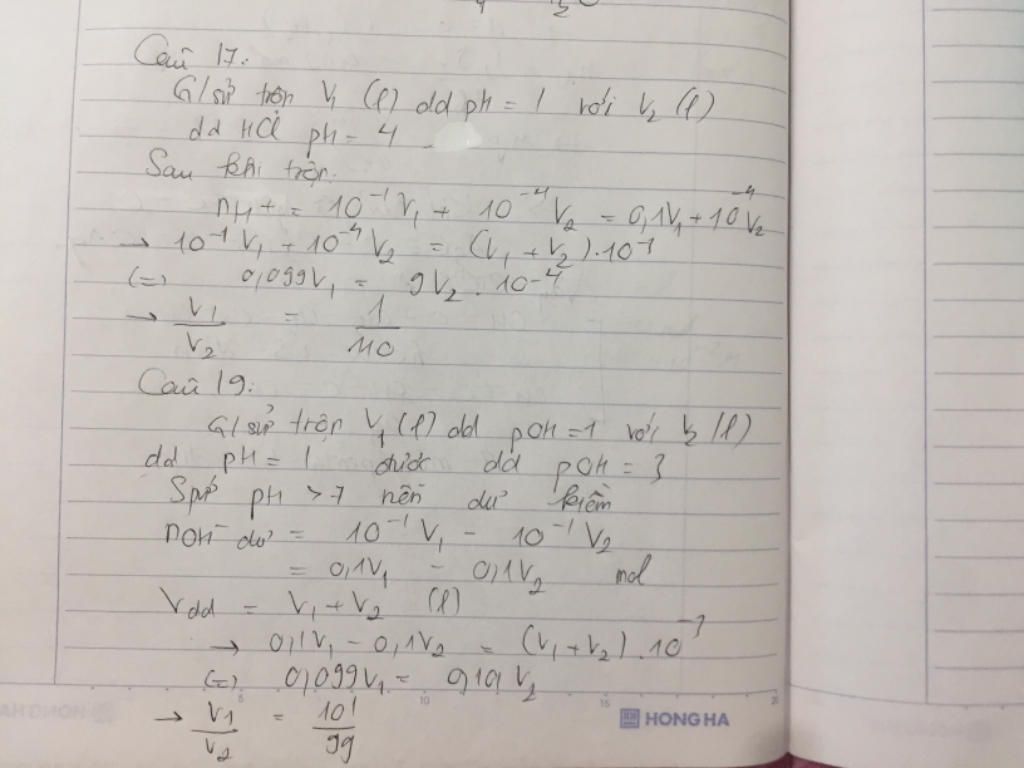 Câu 17:
G/sử trộn V₁ (l) dd pH = 1 với V₂ (l)
dd HCl pH = 4
Sau khi trộn:
nH+ = 10⁻¹V₁ + 10⁻⁴V₂ = 0,1V₁ + 10⁻⁴V₂
→ 10⁻¹V₁ + 10⁻⁴V₂ = (V₁ + V₂).10⁻³
(=) 0,099V₁ = 9V₂.10⁻⁴
→ V₁/V₂ = 1/110
Câu 19:
G/sử trộn V₁ (l) dd pOH = 1 với V₂ (l)
dd pH = 1 được dd pOH = 3
Spứ pH > 7 nên dư kiềm
nOH⁻ dư = 10⁻¹V₁ - 10⁻¹V₂
= 0,1V₁ - 0,1V₂ mol
Vdd = V₁ + V₂ (l)
→ 0,1V₁ - 0,1V₂ = (V₁ + V₂).10⁻³
(=) 0,099V₁ = 0,101V₂
→ V₁/V₂ = 101/99
5 10 15 20
HONG HA